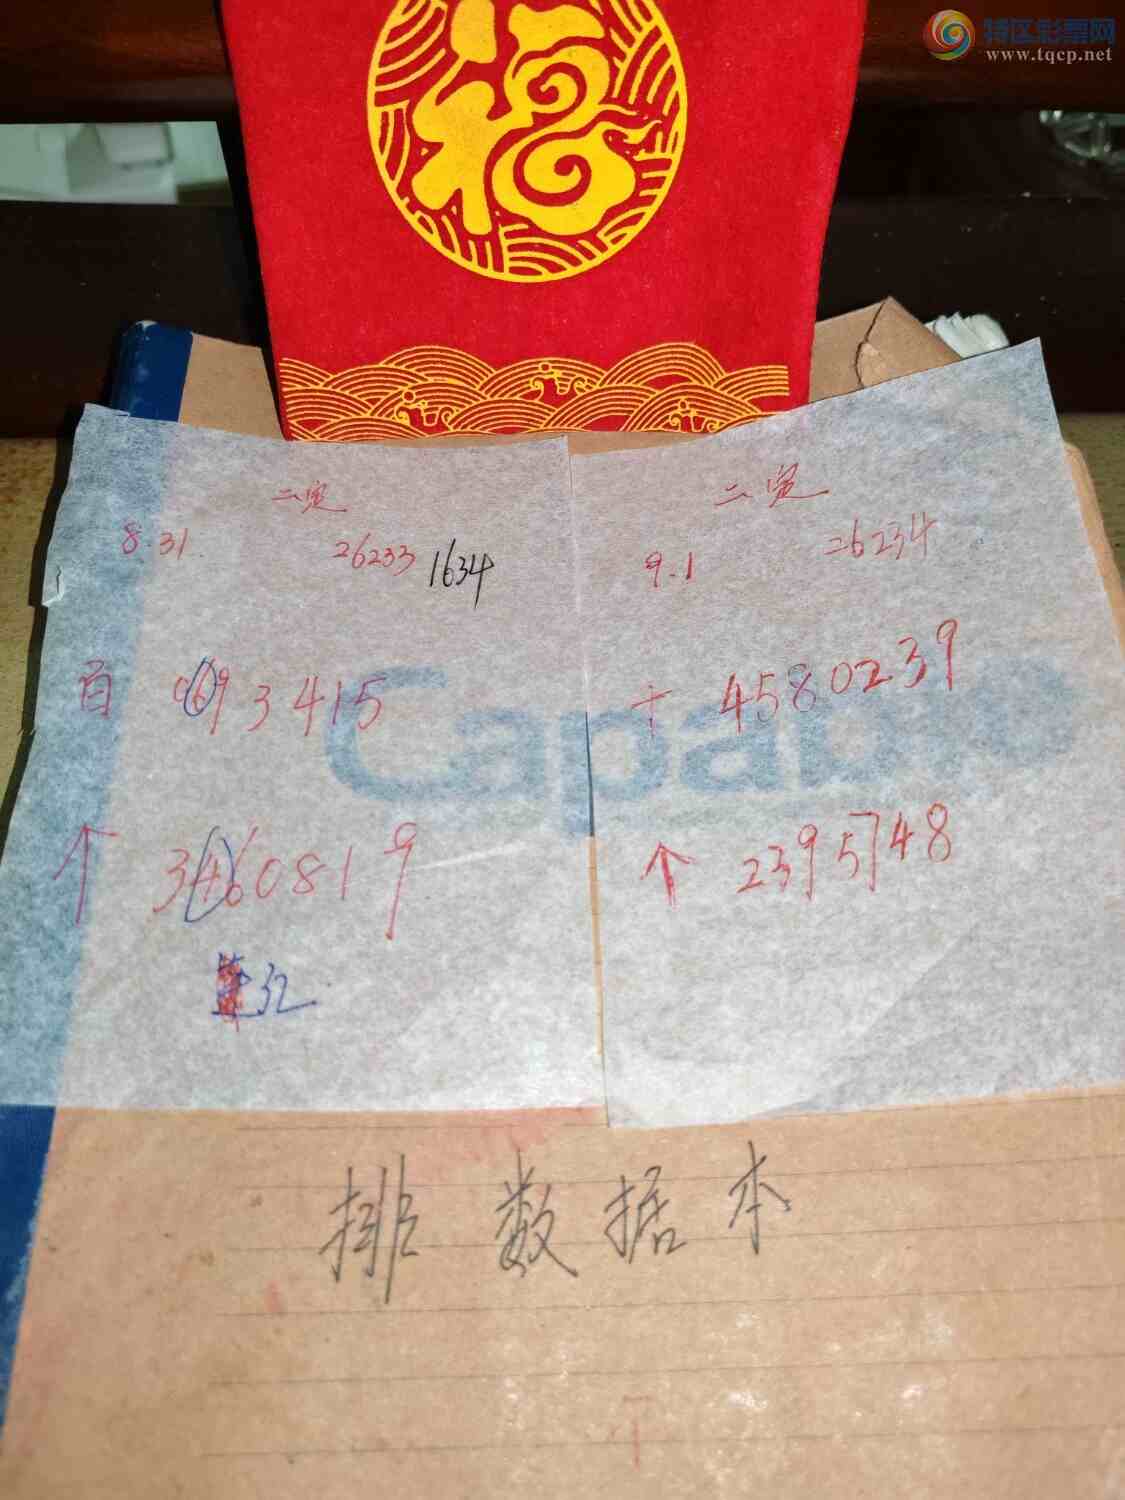 特区彩票网
www.tqcp.net
福
二定
8.31 26233 1634
百 0693415
个 3460819
连红
二定
9.1 26234
十 4580239
个 2395748
Capable
排数据本